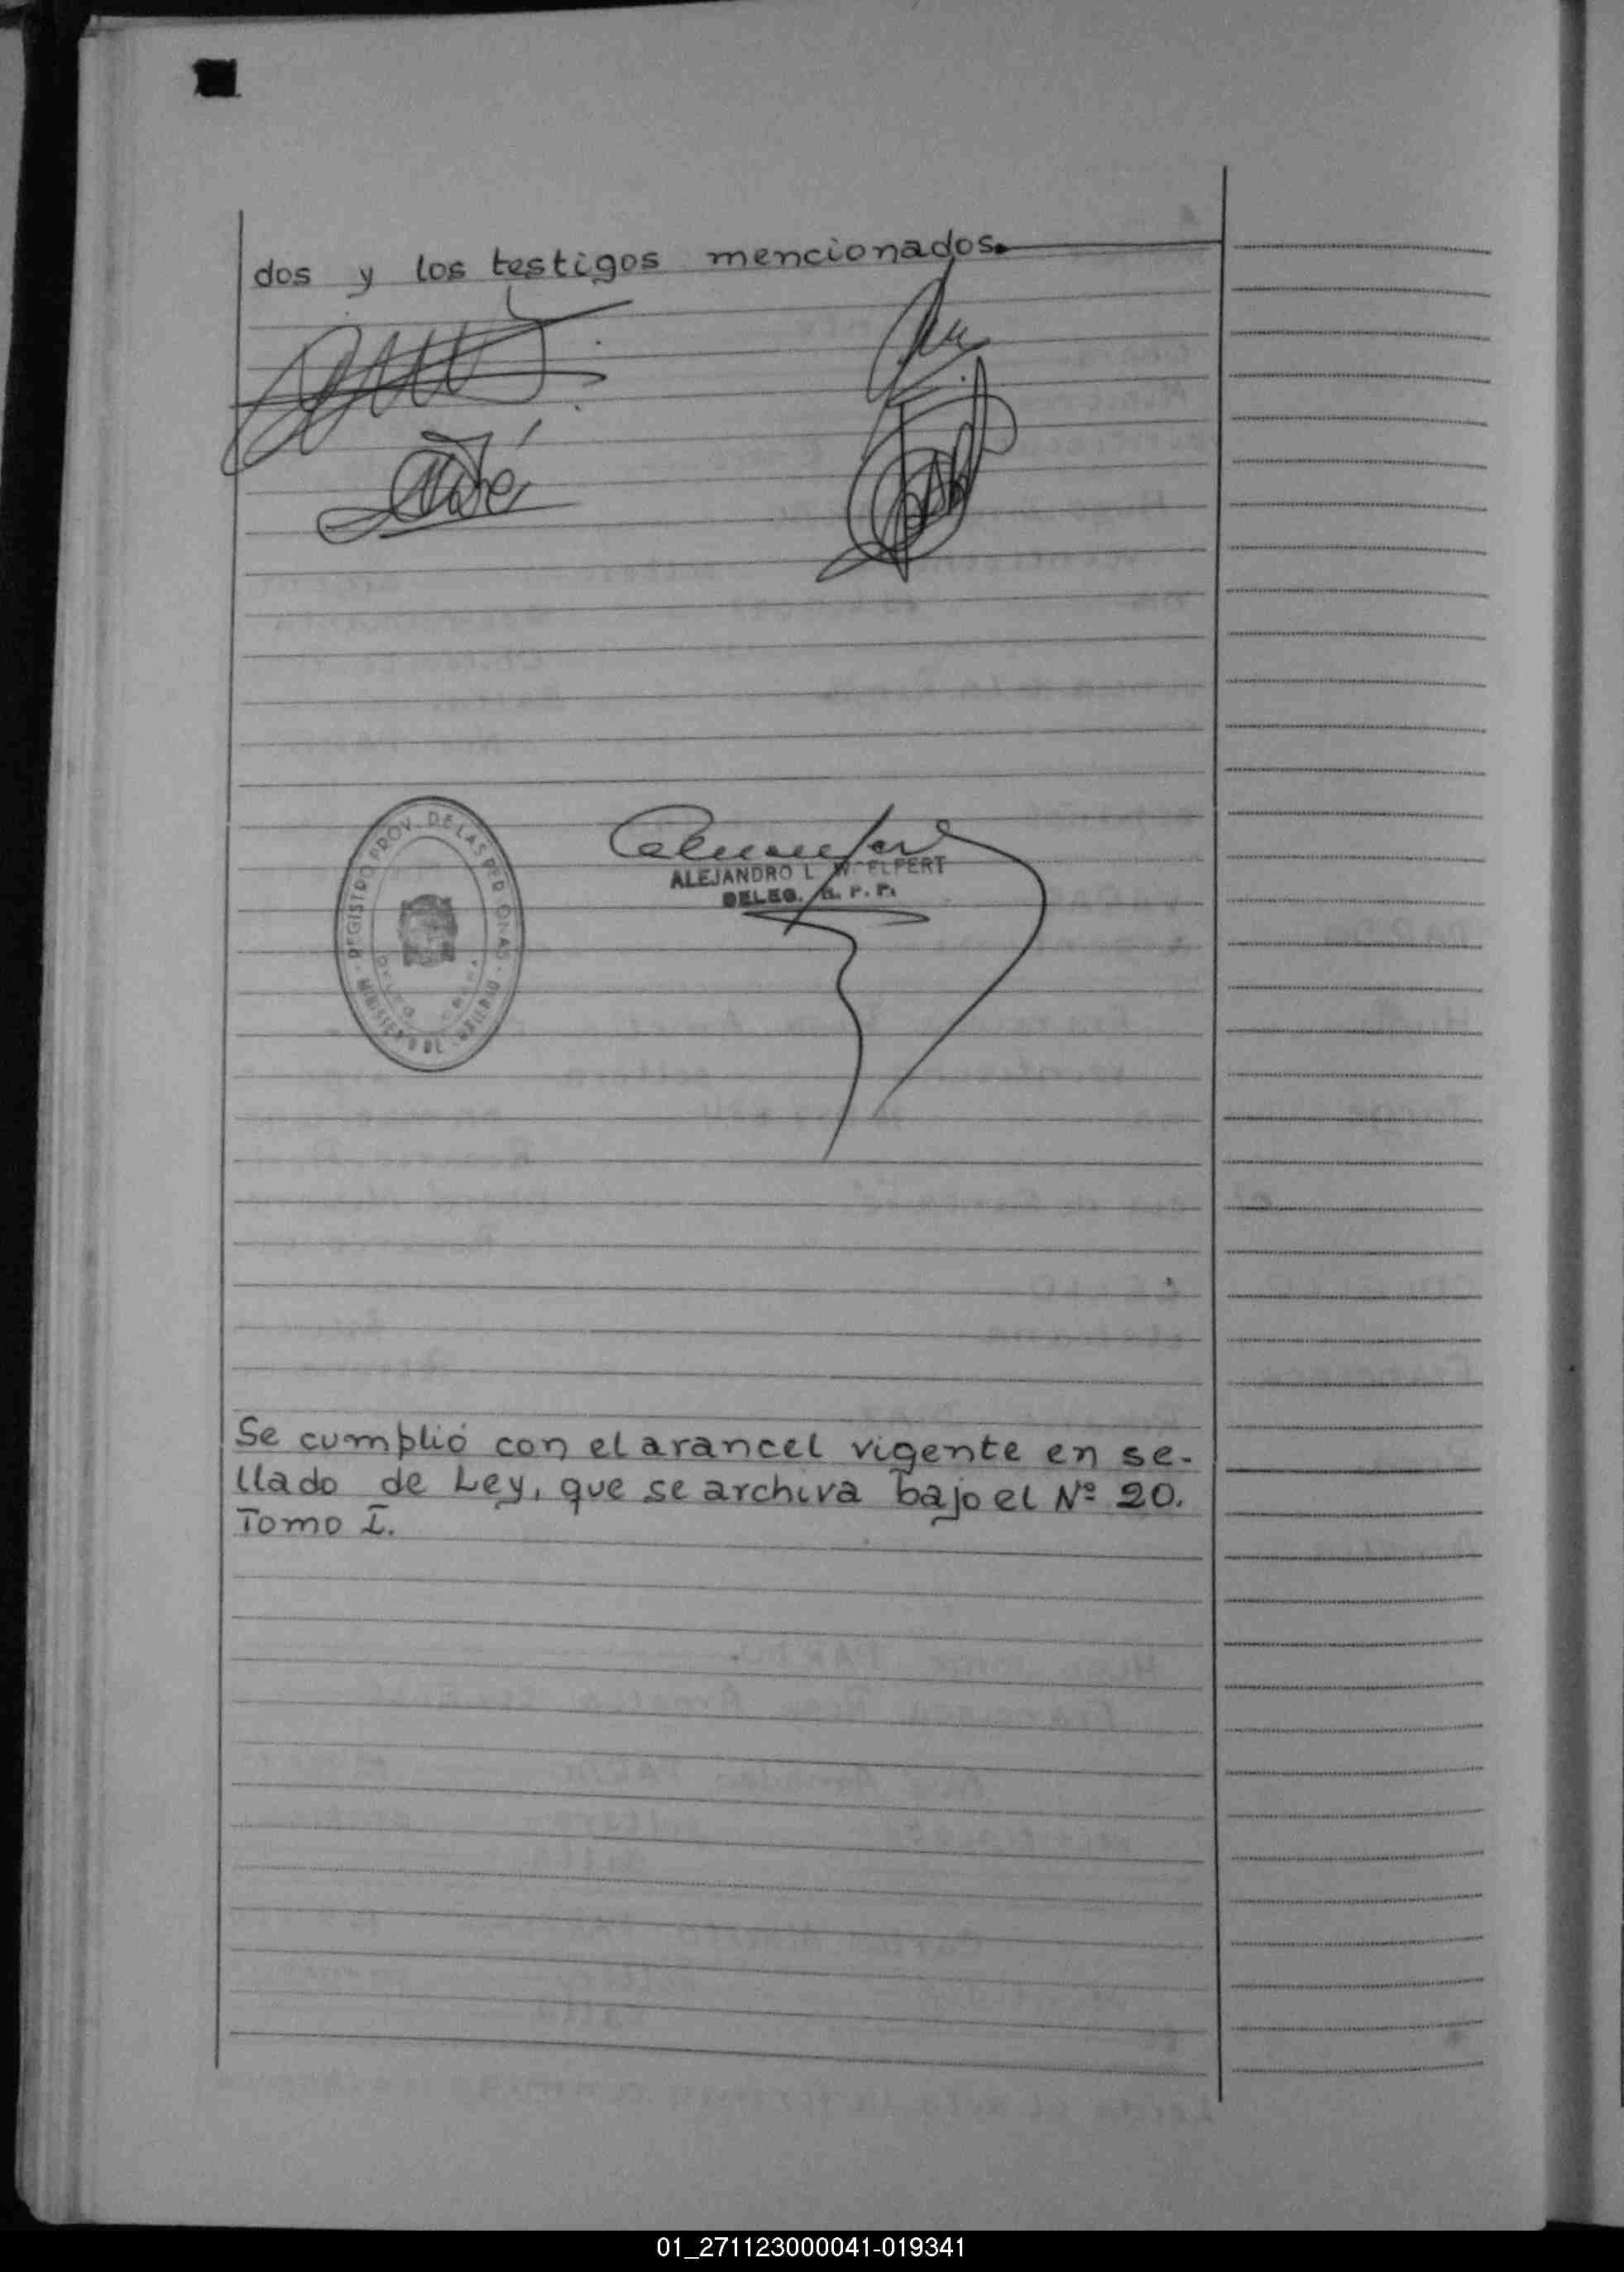 dos y los testigos mencionados.
REGISTRO PROV. DE LAS PERSONAS
MINISTERIO DE
ALEJANDRO L. W. ELPERT
DELEG. R. P. P.
Se cumplió con el arancel vigente en se-
llado de Ley, que se archiva bajo el Nº 20.
Tomo I.
01_271123000041-019341